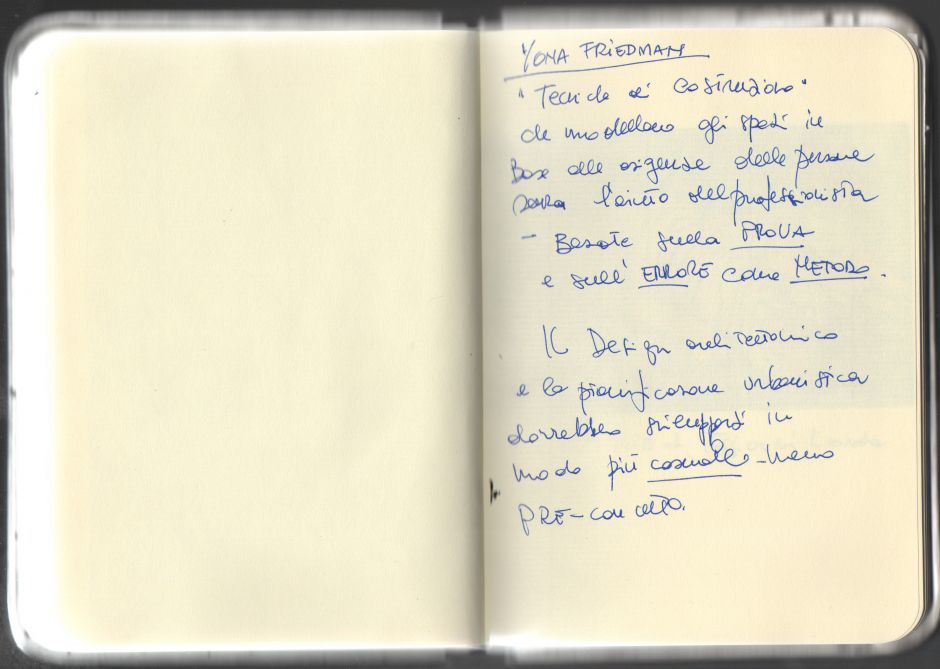 YONA FRIEDMAN
"Tecniche di Costruzione"
che modellano gli spazi in
Base alle esigenze delle persone
senza l'aiuto del professionista
- Basate sulla PROVA
e sull' ERRORE come METODO.
Il Design architettonico
e la pianificazione urbanistica
dovrebbero svilupparsi in
modo più casuale - meno
PRE-concetto.